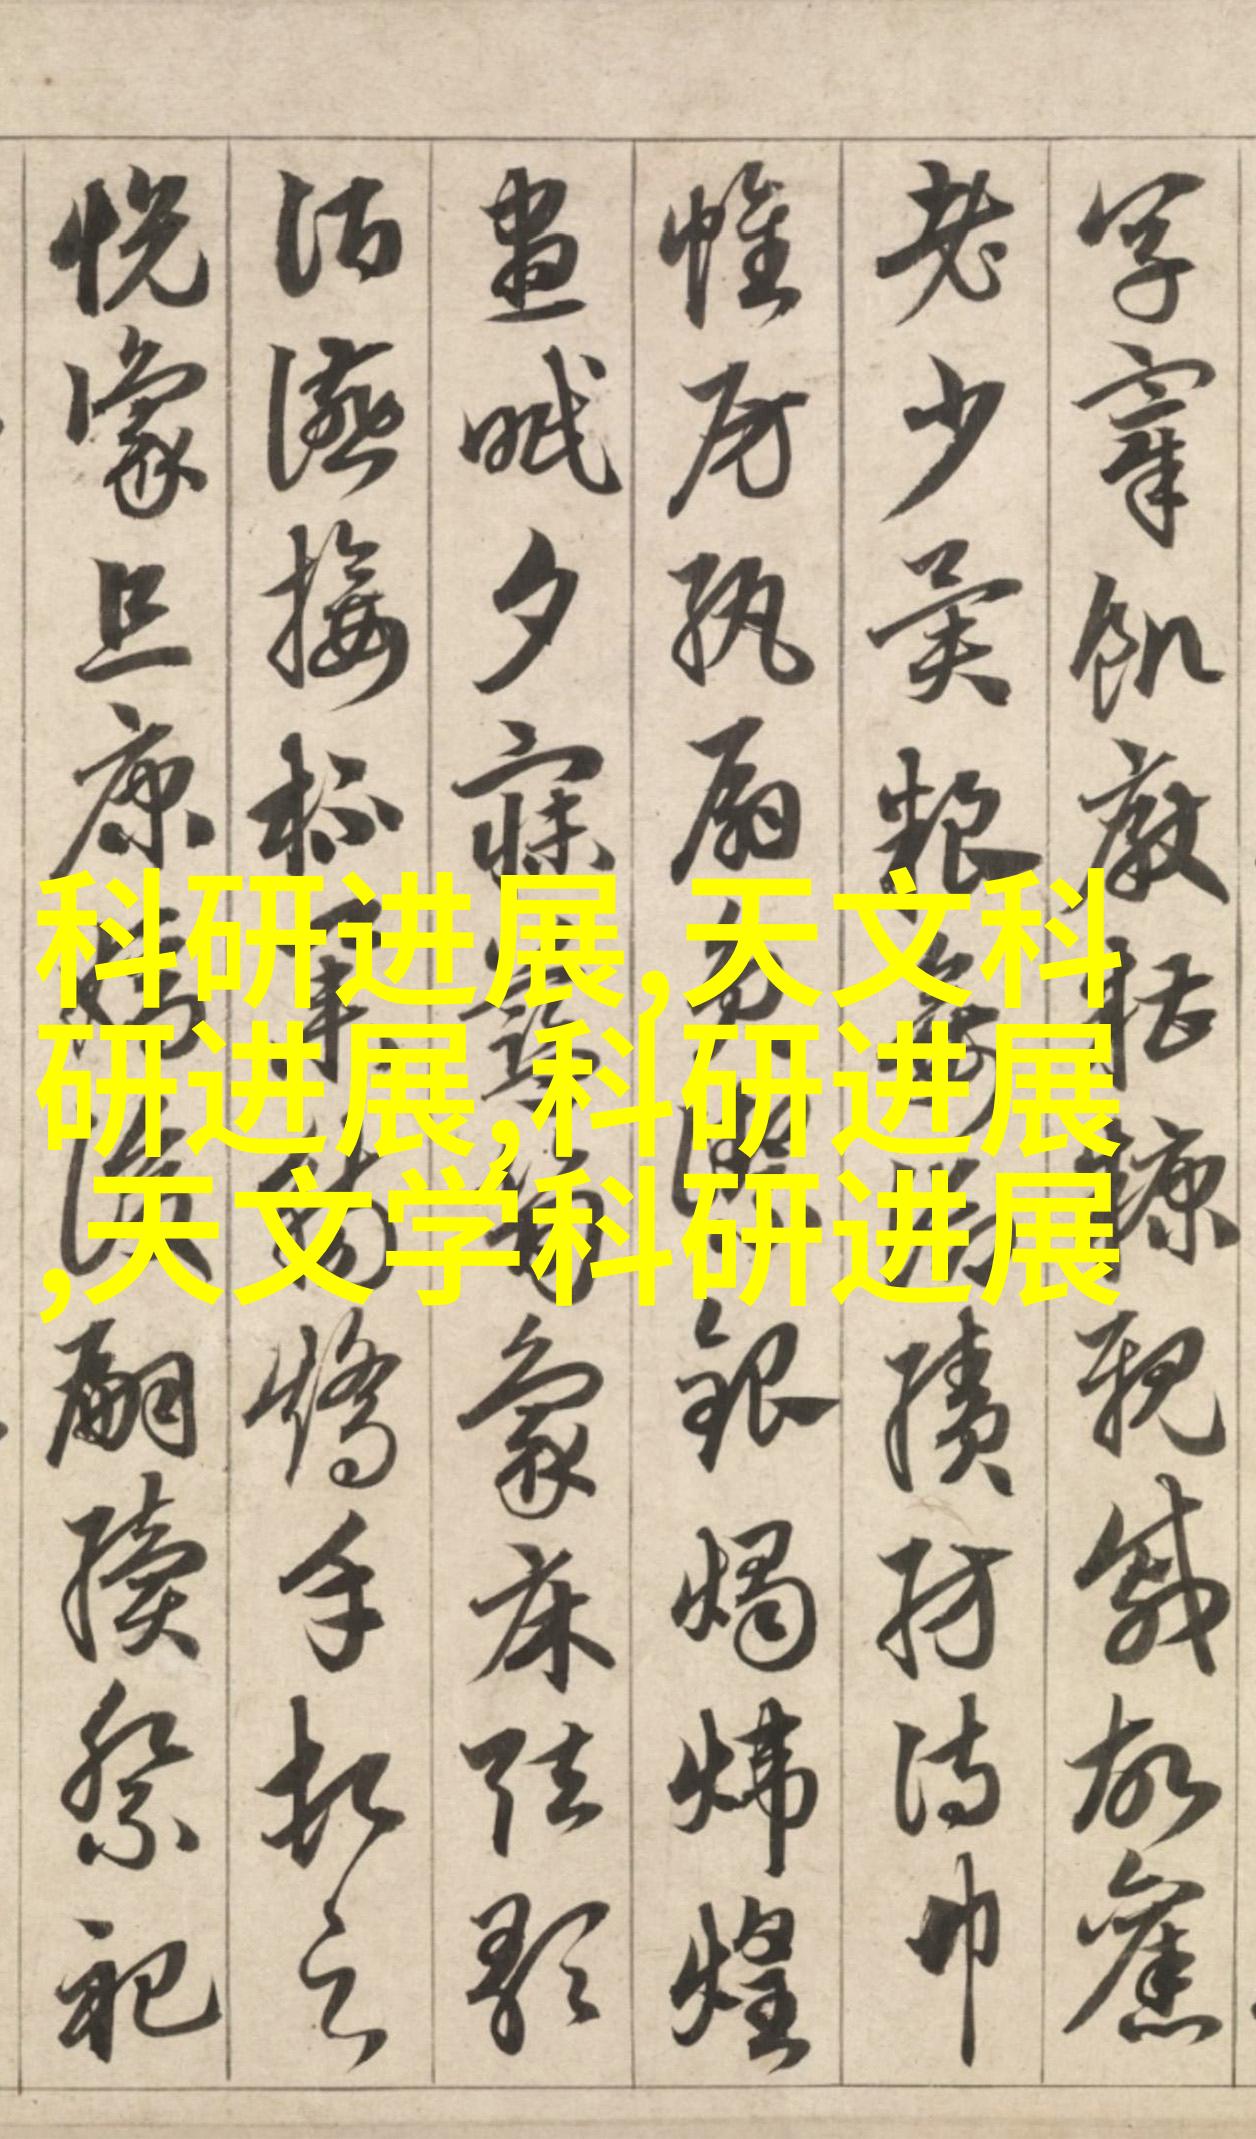 宰飢厭糟糠親戚故舊
老少異糧妾御績紡侍巾
帷房紈扇圓潔銀燭煒煌
晝眠夕寐藍筍象床弦歌
酒讌接杯舉觴矯手頓足
悅豫且康嫡後嗣續祭祀
科研进展,天文科
研进展,科研进展
,天文学科研进展